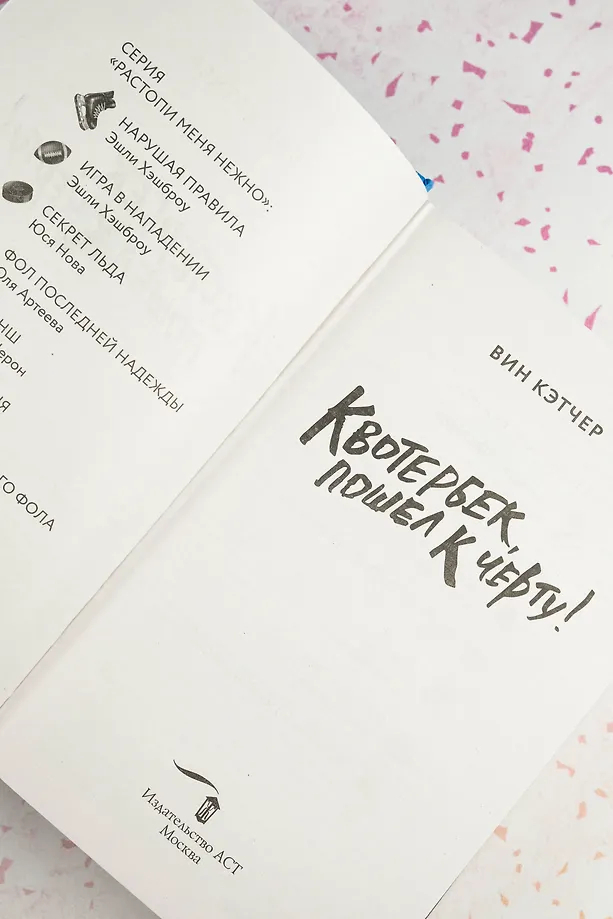 СЕРИЯ
«РАСТОПИ МЕНЯ НЕЖНО»:
НАРУШАЯ ПРАВИЛА
Эшли Хэшброу
ИГРА В НАПАДЕНИИ
Эшли Хэшброу
СЕКРЕТ ЛЬДА
Юся Нова
ФОЛ ПОСЛЕДНЕЙ НАДЕЖДЫ
Артеева
ФОЛА
ВИН КЭТЧЕР
КВОТЕРБЕК,
ПОШЕЛ К ЧЕРТУ!
Издательство АСТ
Москва